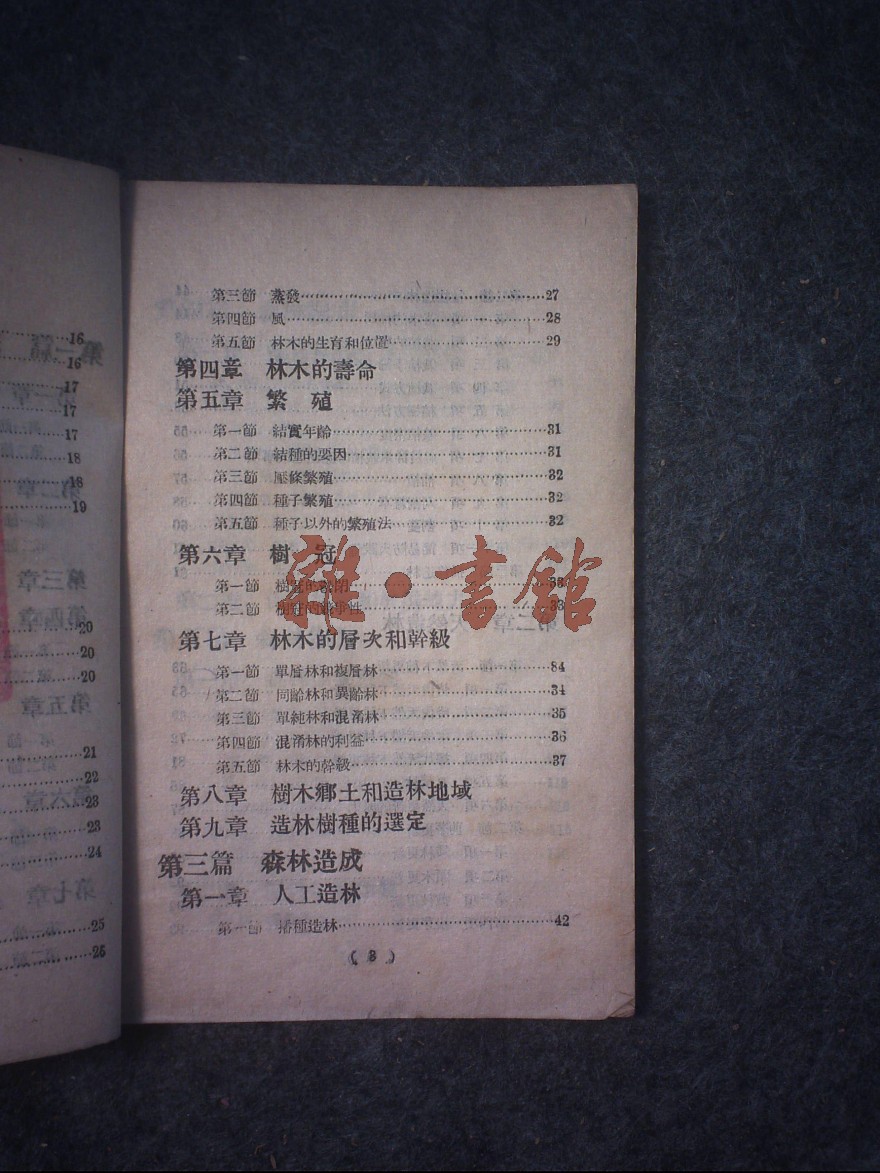 16
16
17
17
17
18
18
19
20
20
20
21
22
23
23
24
25
25
第三節 蒸發……27
第四節 風……28
第五節 林木的生育和位置……29
第四章 林木的壽命
第五章 繁 殖
第一節 結實年齡……31
第二節 結種的要因……31
第三節 壓條繁殖……32
第四節 種子繁殖……32
第五節 種子以外的繁殖法……32
第六章 樹 冠
第一節 樹冠的……33
第二節 樹冠的……33
雜·書館
第七章 林木的層次和幹級
第一節 單層林和複層林……34
第二節 同齡林和異齡林……34
第三節 單純林和混淆林……35
第四節 混淆林的利益……36
第五節 林木的幹級……37
第八章 樹木鄉土和造林地域
第九章 造林樹種的選定
第三篇 森林造成
第一章 人工造林
第一節 播種造林……42
( 3 )